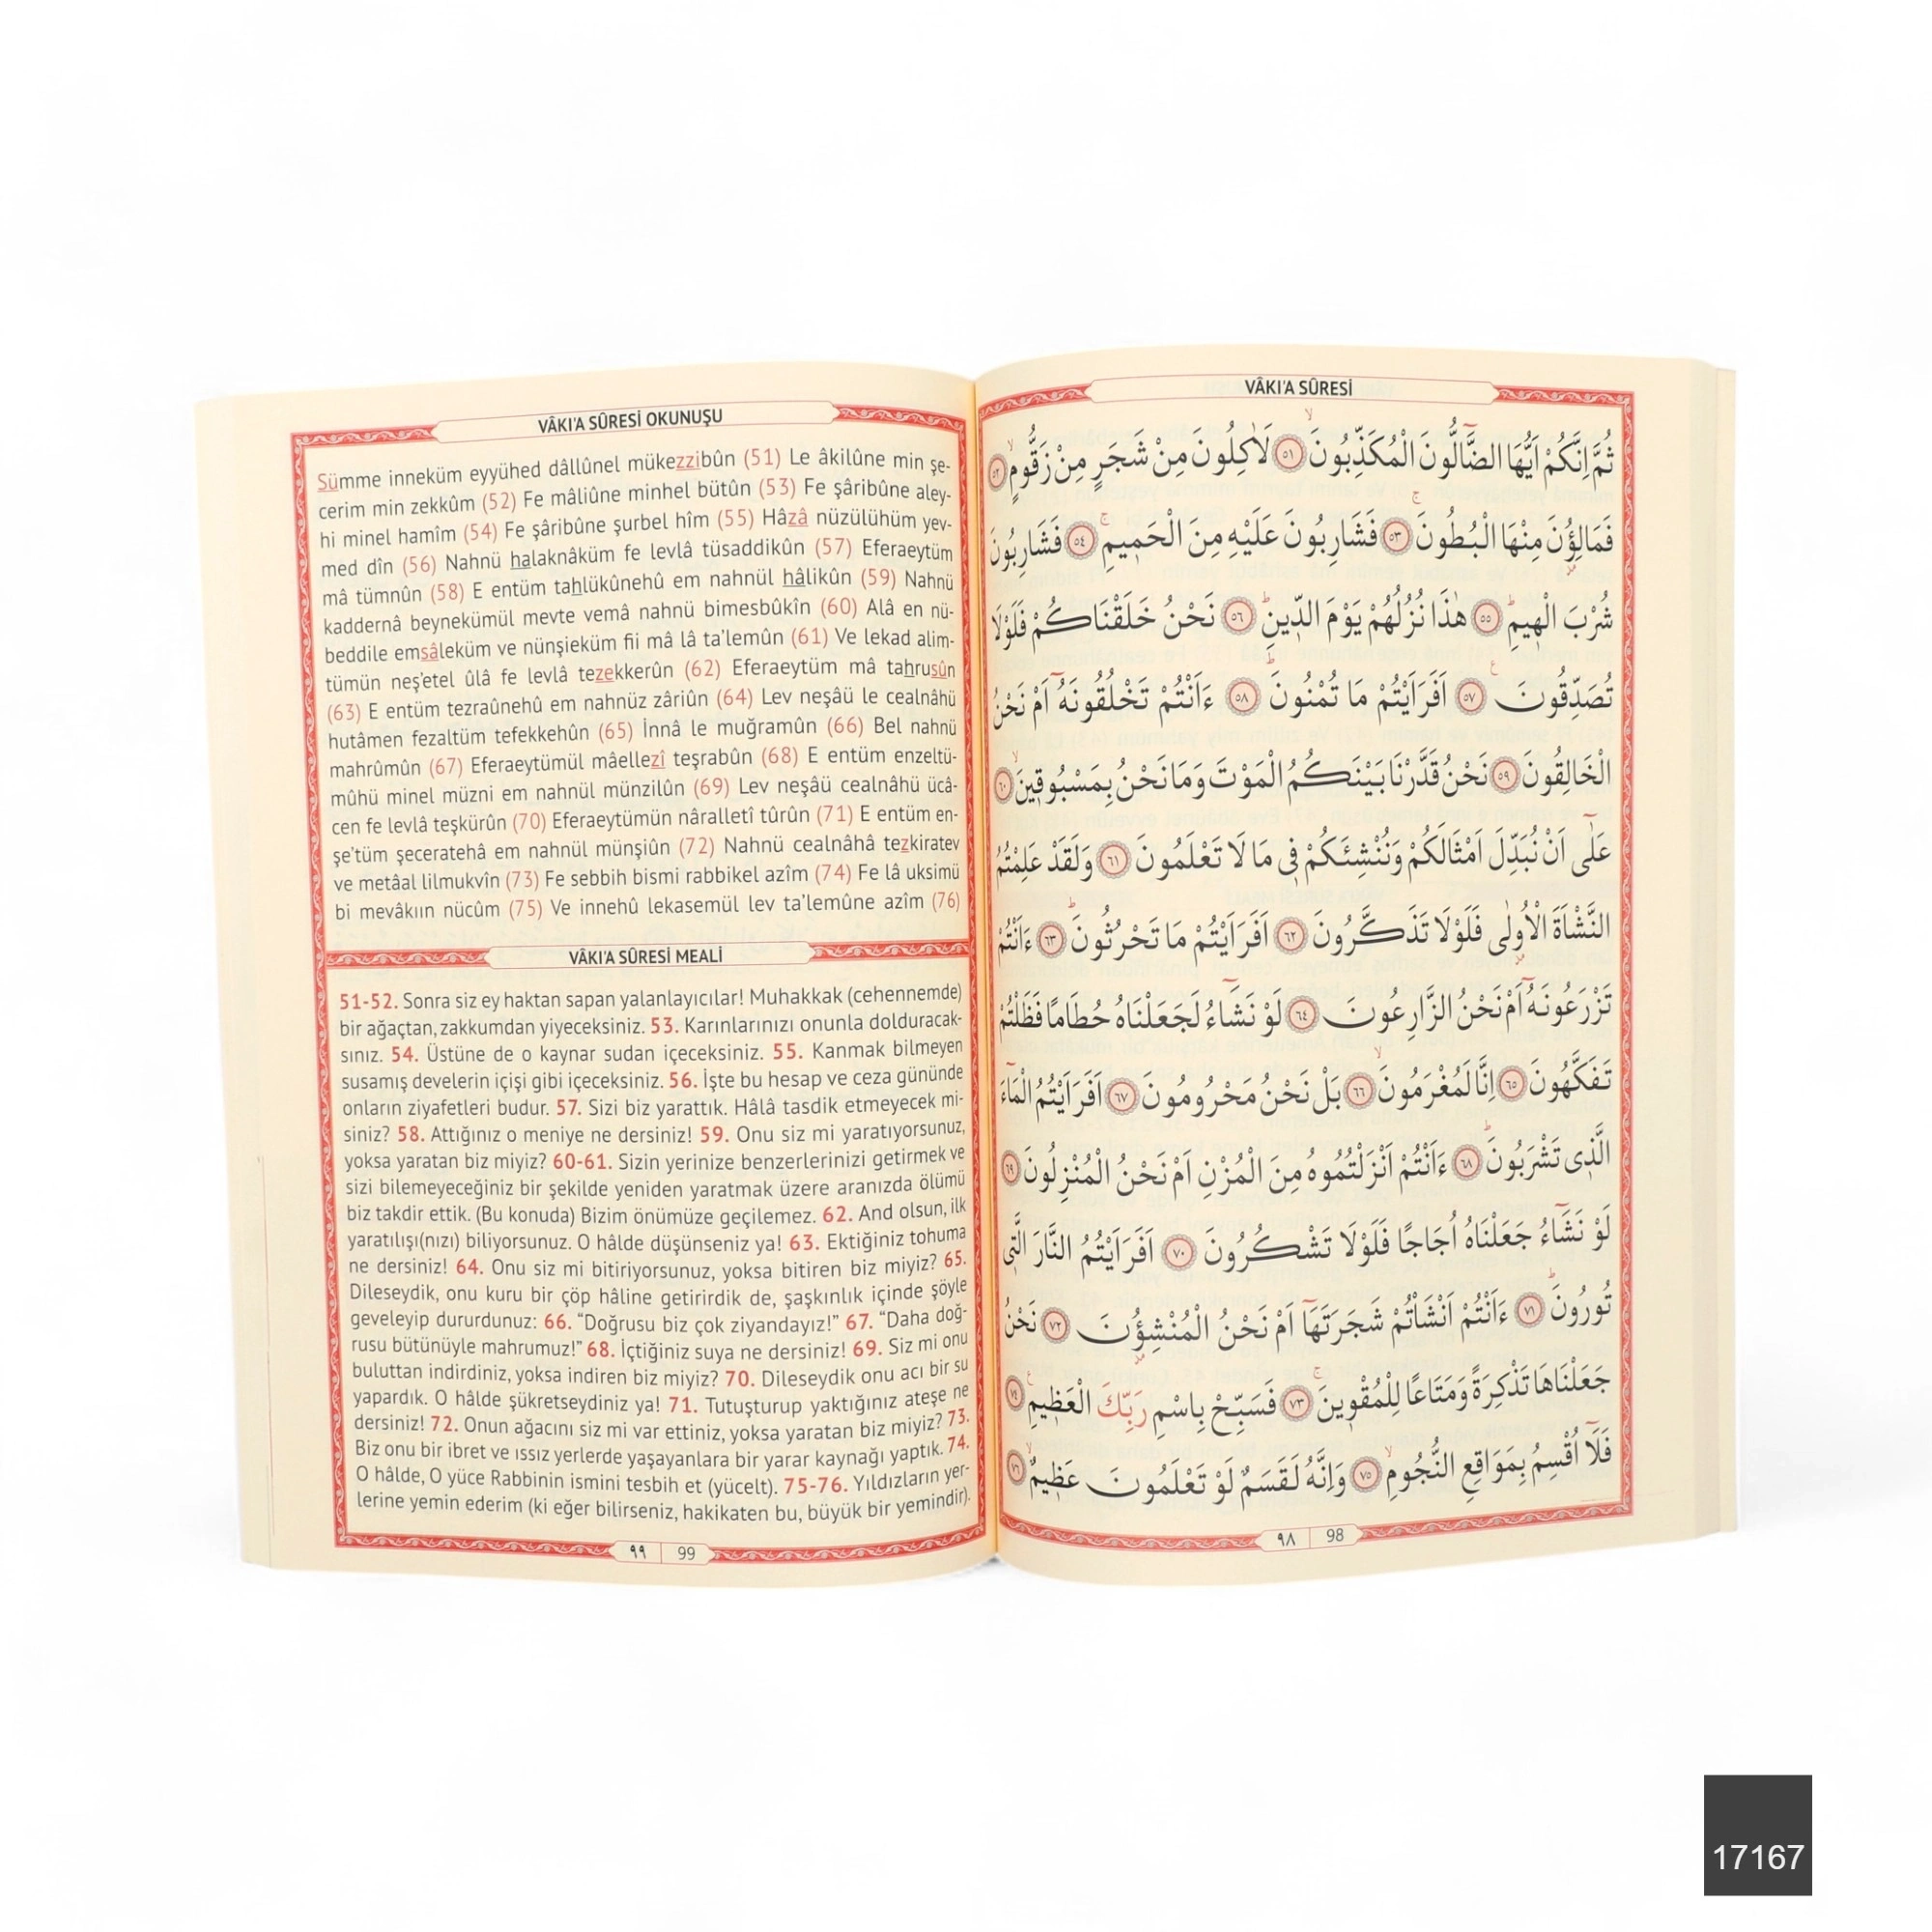 VÂKI'A SÛRESİ OKUNUŞU
Sümme inneküm eyyühed dâllûnel mükezzibûn (51) Le âkilûne min şe-
cerim min zekkûm (52) Fe mâliûne minhel bütûn (53) Fe şâribûne aley-
hi minel hamîm (54) Fe şâribûne şurbel hîm (55) Hâzâ nüzülühüm yev-
med dîn (56) Nahnü halaknâküm fe levlâ tüsaddikûn (57) Eferaeytüm
mâ tümnûn (58) E entüm tahlükûnehû em nahnül hâlikûn (59) Nahnü
kaddernâ beynekümül mevte vemâ nahnü bimesbûkîn (60) Alâ en nü-
beddile emsâleküm ve nünşieküm fii mâ lâ ta'lemûn (61) Ve lekad alim-
tümün neş'etel ûlâ fe levlâ tezekkerûn (62) Eferaeytüm mâ tahrusûn
(63) E entüm tezraûnehû em nahnüz zâriûn (64) Lev neşâü le cealnâhü
hutâmen fezaltüm tefekkehûn (65) İnnâ le muğramûn (66) Bel nahnü
mahrûmûn (67) Eferaeytümül mâellezî teşrabûn (68) E entüm enzeltü-
mûhü minel müzni em nahnül münzilûn (69) Lev neşâü cealnâhü ücâ-
cen fe levlâ teşkürûn (70) Eferaeytümün nâralletî tûrûn (71) E entüm en-
şe'tüm şeceratehâ em nahnül münşiûn (72) Nahnü cealnâhâ tezkiratev
ve metâal lilmukvîn (73) Fe sebbih bismi rabbikel azîm (74) Fe lâ uksimü
bi mevâkıın nücûm (75) Ve innehû lekasemül lev ta'lemûne azîm (76)
VÂKI'A SÛRESİ MEALİ
51-52. Sonra siz ey haktan sapan yalanlayıcılar! Muhakkak (cehennemde)
bir ağaçtan, zakkumdan yiyeceksiniz. 53. Karınlarınızı onunla dolduracak-
sınız. 54. Üstüne de o kaynar sudan içeceksiniz. 55. Kanmak bilmeyen
susamış develerin içişi gibi içeceksiniz. 56. İşte bu hesap ve ceza gününde
onların ziyafetleri budur. 57. Sizi biz yarattık. Hâlâ tasdik etmeyecek mi-
siniz? 58. Attığınız o meniye ne dersiniz! 59. Onu siz mi yaratıyorsunuz,
yoksa yaratan biz miyiz? 60-61. Sizin yerinize benzerlerinizi getirmek ve
sizi bilemeyeceğiniz bir şekilde yeniden yaratmak üzere aranızda ölümü
biz takdir ettik. (Bu konuda) Bizim önümüze geçilemez. 62. And olsun, ilk
yaratılışı(nızı) biliyorsunuz. O hâlde düşünseniz ya! 63. Ektiğiniz tohuma
ne dersiniz! 64. Onu siz mi bitiriyorsunuz, yoksa bitiren biz miyiz? 65.
Dileseydik, onu kuru bir çöp hâline getirirdik de, şaşkınlık içinde şöyle
geveleyip dururdunuz: 66. “Doğrusu biz çok ziyandayız!” 67. “Daha doğ-
rusu bütünüyle mahrumuz!” 68. İçtiğiniz suya ne dersiniz! 69. Siz mi onu
buluttan indirdiniz, yoksa indiren biz miyiz? 70. Dileseydik onu acı bir su
yapardık. O hâlde şükretseydiniz ya! 71. Tutuşturup yaktığınız ateşe ne
dersiniz! 72. Onun ağacını siz mi var ettiniz, yoksa yaratan biz miyiz? 73.
Biz onu bir ibret ve ıssız yerlerde yaşayanlara bir yarar kaynağı yaptık. 74.
O hâlde, O yüce Rabbinin ismini tesbih et (yücelt). 75-76. Yıldızların yer-
lerine yemin ederim (ki eğer bilirseniz, hakikaten bu, büyük bir yemindir).
٩٩ 99
VÂKI'A SÛRESİ
ثُمَّ اِنَّكُمْ اَيُّهَا الضَّٓالُّونَ الْمُكَذِّبُونَۙ ٥١ لَاٰكِلُونَ مِنْ شَجَرٍ مِنْ زَقُّومٍۙ ٥٢
فَمَالِؤُ۫نَ مِنْهَا الْبُطُونَۚ ٥٣ فَشَارِبُونَ عَلَيْهِ مِنَ الْحَم۪يمِۚ ٥٤ فَشَارِبُونَ
شُرْبَ الْه۪يمِۜ ٥٥ هٰذَا نُزُلُهُمْ يَوْمَ الدّ۪ينِۜ ٥٦ نَحْنُ خَلَقْنَاكُمْ فَلَوْلَا
تُصَدِّقُونَ ٥٧ اَفَرَاَيْتُمْ مَا تُمْنُونَۜ ٥٨ ءَاَنْتُمْ تَخْلُقُونَهُٓ اَمْ نَحْنُ
الْخَالِقُونَ ٥٩ نَحْنُ قَدَّرْنَا بَيْنَكُمُ الْمَوْتَ وَمَا نَحْنُ بِمَسْبُوق۪ينَۙ ٦٠
عَلٰٓى اَنْ نُبَدِّلَ اَمْثَالَكُمْ وَنُنْشِئَكُمْ ف۪ي مَا لَا تَعْلَمُونَ ٦١ وَلَقَدْ عَلِمْتُمُ
النَّشْاَةَ الْاُو۫لٰى فَلَوْلَا تَذَكَّرُونَ ٦٢ اَفَرَاَيْتُمْ مَا تَحْرُثُونَۜ ٦٣ ءَاَنْتُمْ
تَزْرَعُونَهُٓ اَمْ نَحْنُ الزَّارِعُونَ ٦٤ لَوْ نَشَٓاءُ لَجَعَلْنَاهُ حُطَامًا فَظَلْتُمْ
تَفَكَّهُونَ ٦٥ اِنَّا لَمُغْرَمُونَۙ ٦٦ بَلْ نَحْنُ مَحْرُومُونَ ٦٧ اَفَرَاَيْتُمُ الْمَٓاءَ
الَّذ۪ي تَشْرَبُونَۜ ٦٨ ءَاَنْتُمْ اَنْزَلْتُمُوهُ مِنَ الْمُزْنِ اَمْ نَحْنُ الْمُنْزِلُونَ ٦٩
لَوْ نَشَٓاءُ جَعَلْنَاهُ اُجَاجًا فَلَوْلَا تَشْكُرُونَ ٧٠ اَفَرَاَيْتُمُ النَّارَ الَّت۪ي
تُورُونَۜ ٧١ ءَاَنْتُمْ اَنْشَاْتُمْ شَجَرَتَهَٓا اَمْ نَحْنُ الْمُنْشِؤُ۫نَ ٧٢ نَحْنُ
جَعَلْنَاهَا تَذْكِرَةً وَمَتَاعًا لِلْمُقْو۪ينَۚ ٧٣ فَسَبِّحْ بِاسْمِ رَبِّكَ الْعَظ۪يمِ ٧٤
فَلَٓا اُقْسِمُ بِمَوَاقِعِ النُّجُومِۙ ٧٥ وَاِنَّهُ لَقَسَمٌ لَوْ تَعْلَمُونَ عَظ۪يمٌۙ ٧٦
٩٨ 98
17167